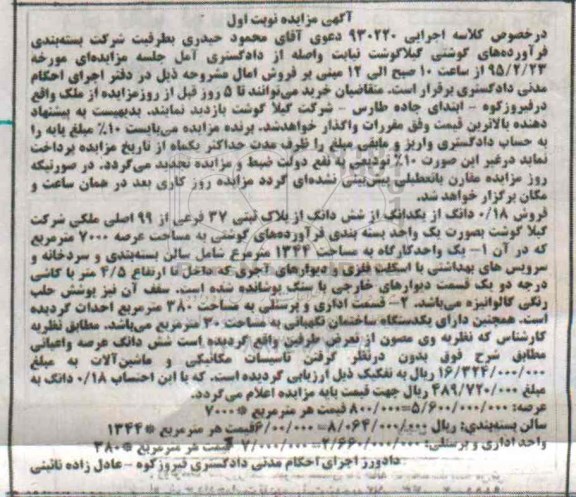 آگهی مزایده نوبت اول
درخصوص کلاسه اجرایی ۹۳۰۲۲۰ دعوی آقای محمود حیدری بطرفیت شرکت بسته‌بندی
فرآورده‌های گوشتی گیلاگوشت نیابت واصله از دادگستری آمل جلسه مزایده‌ای مورخه
۹۵/۲/۲۳ از ساعت ۱۰ صبح الی ۱۲ مبنی بر فروش اموال مشروحه ذیل در دفتر اجرای احکام
مدنی دادگستری برقرار است. متقاضیان خرید می‌توانند تا ۵ روز قبل از روزمزایده از ملک واقع
درفیروزکوه - ابتدای جاده طارس - شرکت گیلا گوشت بازدید نمایند. بدیهیست به پیشنهاد
دهنده بالاترین قیمت وفق مقررات واگذار خواهدشد. برنده مزایده می‌بایست ۱۰٪ مبلغ پایه را
به حساب دادگستری واریز و مابقی مبلغ را ظرف مدت حداکثر یکماه از تاریخ مزایده پرداخت
نماید درغیر این صورت ۱۰٪ تودیعی به نفع دولت ضبط و مزایده تجدید می‌گردد. در صورتیکه
روز مزایده مقارن باتعطیلی پیش‌بینی نشده‌ای گردد مزایده روز کاری بعد در همان ساعت و
مکان برگزار خواهد شد.
فروش ۰/۱۸ دانگ از یکدانگ از شش دانگ از پلاک ثبتی ۳۷ فرعی از ۹۹ اصلی ملکی شرکت
گیلا گوشت بصورت یک واحد بسته بندی فرآورده‌های گوشتی به مساحت عرصه ۷۰۰۰ مترمربع
که در آن ۱- یک واحدکارگاه به مساحت ۱۳۴۴ مترمربع شامل سالن بسته‌بندی و سردخانه و
سرویس های بهداشتی با اسکلت فلزی و دیوارهای آجری که داخل تا ارتفاع ۴/۵ متر با کاشی
درجه دو یک قسمت دیوارهای خارجی با سنگ پوشانده شده است. سقف آن نیز پوشش حلب
رنگی گالوانیزه می‌باشد. ۲- قسمت اداری و پرسنلی به مساحت ۳۸۰ مترمربع احداث گردیده
است. همچنین دارای یکدستگاه ساختمان نگهبانی به مساحت ۳۰ مترمربع می‌باشد. مطابق نظریه
کارشناس که نظریه وی مصون از تعرض طرفین واقع گردیده است شش دانگ عرصه واعیانی
مطابق شرح فوق بدون درنظر گرفتن تاسیسات مکانیکی و ماشین‌آلات به مبلغ
۱۶/۳۲۴/۰۰۰/۰۰۰ ریال به تفکیک ذیل ارزیابی گردیده است. که با این احتساب ۰/۱۸ دانگ به
مبلغ ۴۸۹/۷۲۰/۰۰۰ ریال جهت قیمت پایه مزایده اعلام می‌گردد.
عرصه: ۵/۶۰۰/۰۰۰/۰۰۰=۸۰۰/۰۰۰ قیمت هر مترمربع *۷۰۰۰
سالن بسته‌بندی: ریال ۸/۰۶۴/۰۰۰/۰۰۰=۶/۰۰۰/۰۰۰قیمت هر مترمربع *۱۳۴۴
واحد اداری و پرسنلی: ۲/۶۶۰/۰۰۰/۰۰۰=۷/۰۰۰/۰۰۰ قیمت هر مترمربع *۳۸۰
دادورز اجرای احکام مدنی دادگستری فیروزکوه - عادل زاده نائینی